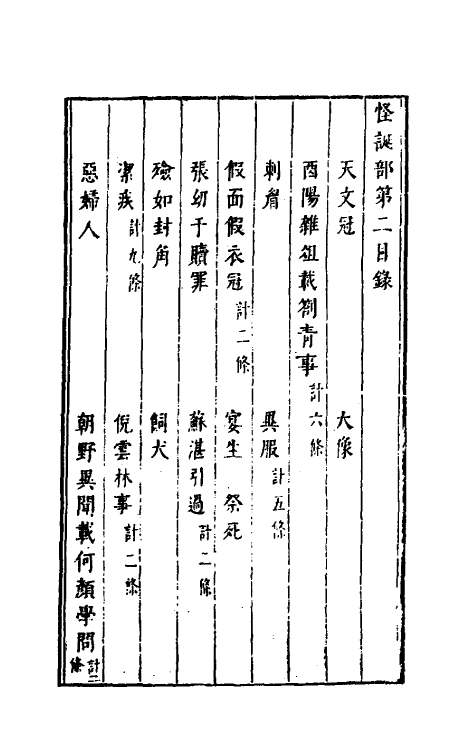 怪誕部第二目錄
天文冠 大像
酉陽雜俎載劄青事計六條
刺眉 異服計五條
假面假衣冠計二條 宴生 祭死
張幼于贖罪 蘇湛引過計二條
殮如封角 飼犬
潔疾計九條 倪雲林事計二條
惡婦人 朝野異聞載何顏學問計二條